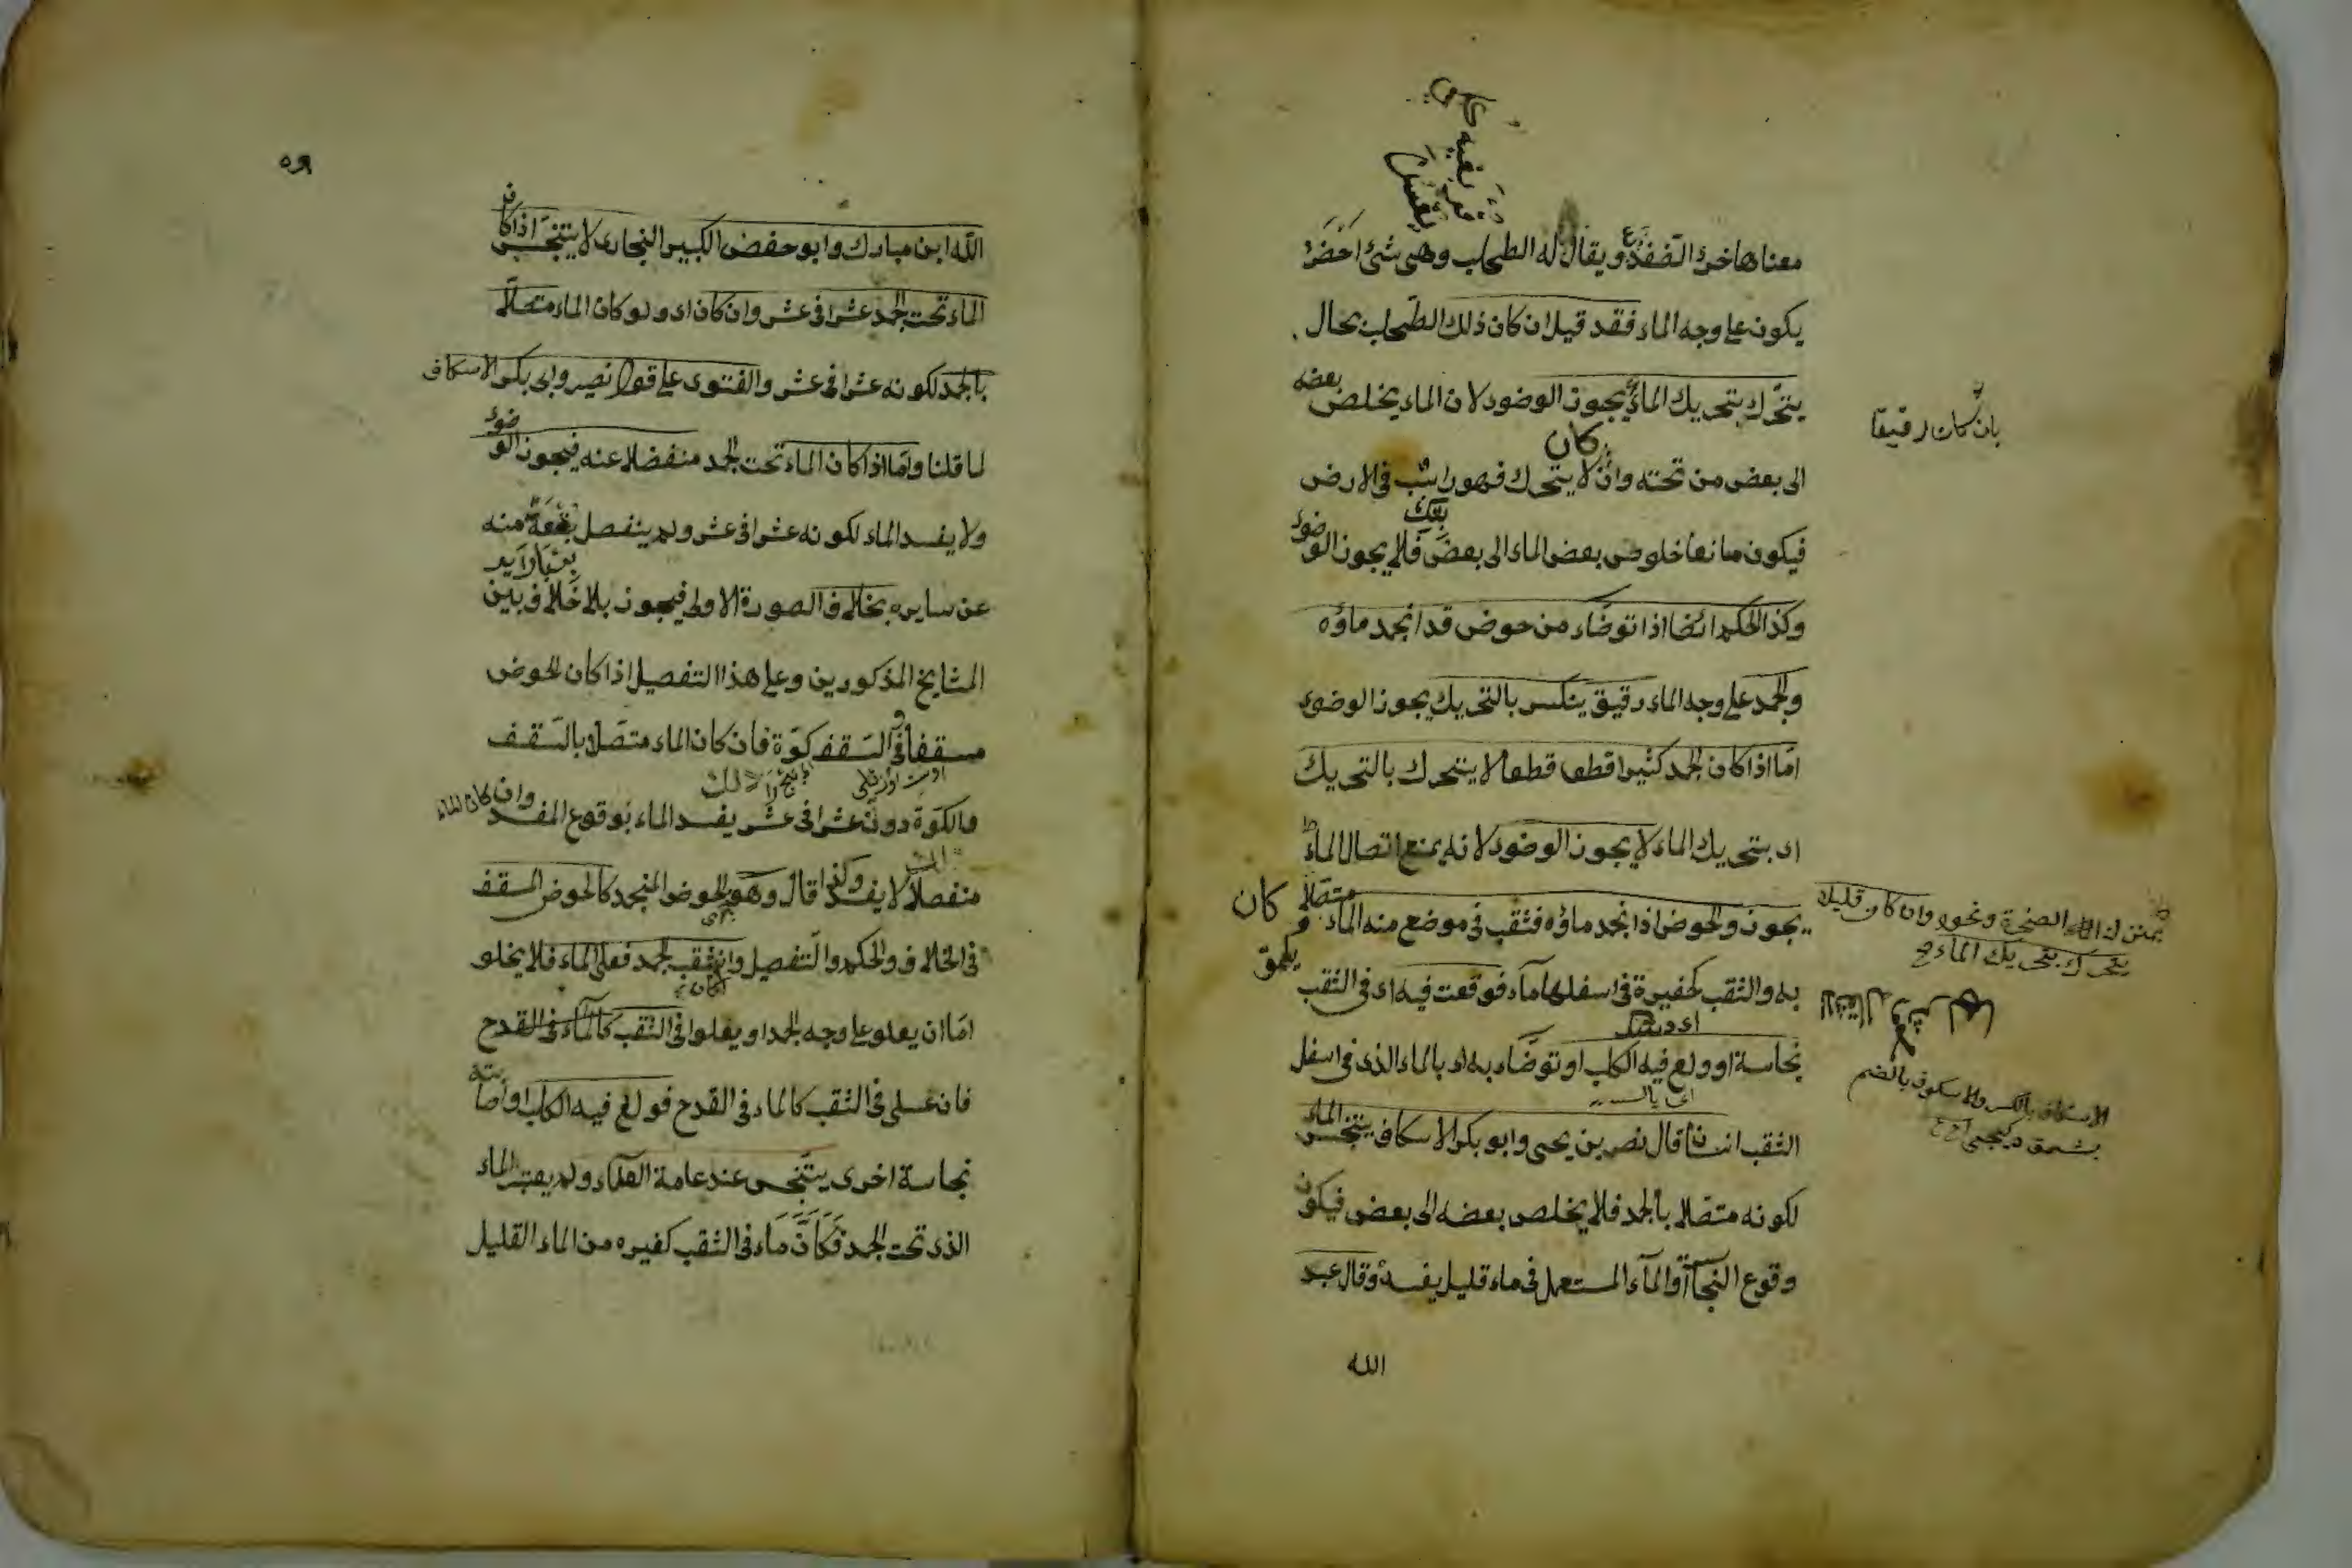 معناها خرؤ الضفدع ويقال له الطحلب وهى شئ اخضر
يكون على وجه الماء فقد قيل ان كان ذلك الطحلب بحال
يتحرك بتحريك الماء يجوز الوضوء لان الماء يخلص بعضه
بان كان رقيقا
كان
الى بعض من تحته وان لا يتحرك فهو راسب فى الارض
فيكون مانعا خلوص بعض الماء الى بعض فلا يجوز الوضوء
وكذا الحكم ايضا اذا توضاء من حوض قد انجمد ماؤه
والجمد على وجه الماء رقيق ينكسر بالتحريك يجوز الوضوء
امّا اذا كان الجمد كثيرا قطعا قطعا لا يتحرك بالتحريك
اى بتحريك الماء لا يجوز الوضوء لانه يمنع اتصال الماء
الصخرة ونحوه وان كان قليلا
يتحرك بتحريك الماء
يجوز والحوض اذا انجمد ماؤه فثقب فى موضع منه الماء متصلا
كان
به والثقب كحفيرة فى اسفلها ماء فوقعت فيه اى فى الثقب
نجاسة او ولغ فيه الكلب او توضاء به اى بالماء الذى فى اسفل
الاسكاف بالكسر والاسكوف بالضم
الثقب انسان قال نصر بن يحيى وابو بكر الاسكاف يتنجس الماء
لكونه متصلا بالجمد فلا يخلص بعضه الى بعض فيكون
وقوع النجاسة او الماء المستعمل فى ماء قليل يفسده وقال عبد
الله
الله ابن مبارك وابو حفص الكبير البخارى لا يتنجس اذا كان
الماء تحت الجمد عشرا فى عشر وان كان اى ولو كان الماء متصلا
بالجمد لكونه عشرا فى عشر والفتوى على قول نصير وابى بكر الاسكاف
لما قلنا وامّا اذا كان الماء تحت الجمد منفصلا عنه فيجوز الوضوء
ولا يفسد الماء لكونه عشرا فى عشر ولم ينفصل بقعة منه
عن سايره بخلاف الصورة الاولى فيجوز بلا خلاف بين
المشايخ المذكورين وعلى هذا التفصيل اذا كان الحوض
مسقفا وفى السّقف كوّة فان كان الماء متصلا بالسّقف
والكوّة دون عشرا فى عشر يفسد الماء بوقوع المفسد وان كان الماء
منفصلا لا يفسد وكذا قال وهو الحوض المنجمد كالحوض المسقف
فى الخلاف والحكم والتفصيل وان ثقب الجمد فعلى الماء فلا يخلو
امّا ان يعلو على وجه الجمد او يعلو فى الثقب كالماء فى القدح
فان على فى الثقب كالماء فى القدح فولغ فيه الكلب او اصابته
نجاسة اخرى يتنجس عند عامة العلماء ولم يعتبر الماء
الذى تحت الجمد فكان ماء فى الثقب كغيره من الماء القليل